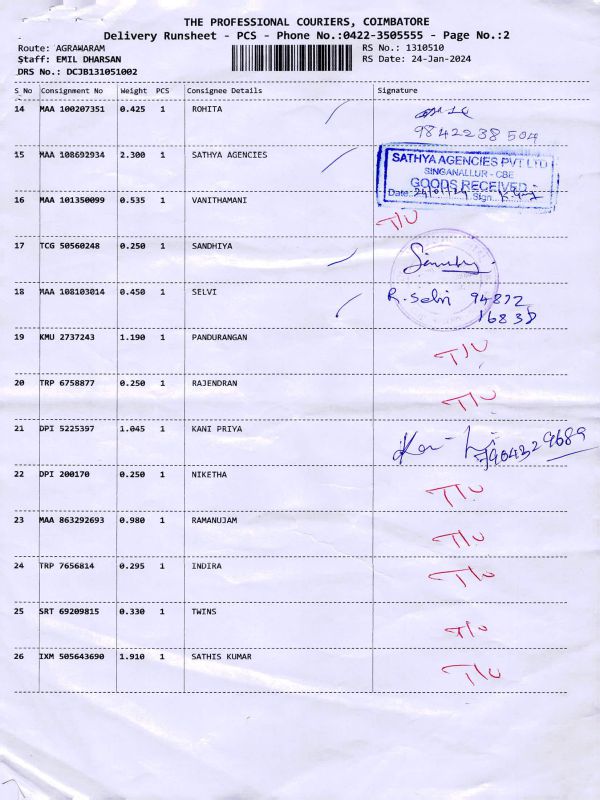 THE PROFESSIONAL COURIERS, COIMBATORE
Delivery Runsheet - PCS - Phone No.:0422-3505555 - Page No.:2
Route: AGRAWARAM RS No.: 1310510
Staff: EMIL DHARSAN RS Date: 24-Jan-2024
DRS No.: DCJB131051002
S_No Consignment No Weight PCS Consignee Details Signature
14 MAA 100207351 0.425 1 ROHITA
9842238504
15 MAA 108692934 2.300 1 SATHYA AGENCIES
SATHYA AGENCIES PVT LTD
SINGANALLUR - CBE
GOODS RECEIVED
Date: 24/01/24 Sign:
16 MAA 101350099 0.535 1 VANITHAMANI T/U
17 TCG 50560248 0.250 1 SANDHIYA
18 MAA 108103014 0.450 1 SELVI R. Selvi 94872
16838
19 KMU 2737243 1.190 1 PANDURANGAN T/U
20 TRP 6758877 0.250 1 RAJENDRAN T/U
21 DPI 5225397 1.045 1 KANI PRIYA
22 DPI 200170 0.250 1 NIKETHA T/U
23 MAA 863292693 0.980 1 RAMANUJAM T/U
24 TRP 7656814 0.295 1 INDIRA T/U
25 SRT 69209815 0.330 1 TWINS T/U
26 IXM 505643690 1.910 1 SATHIS KUMAR T/U